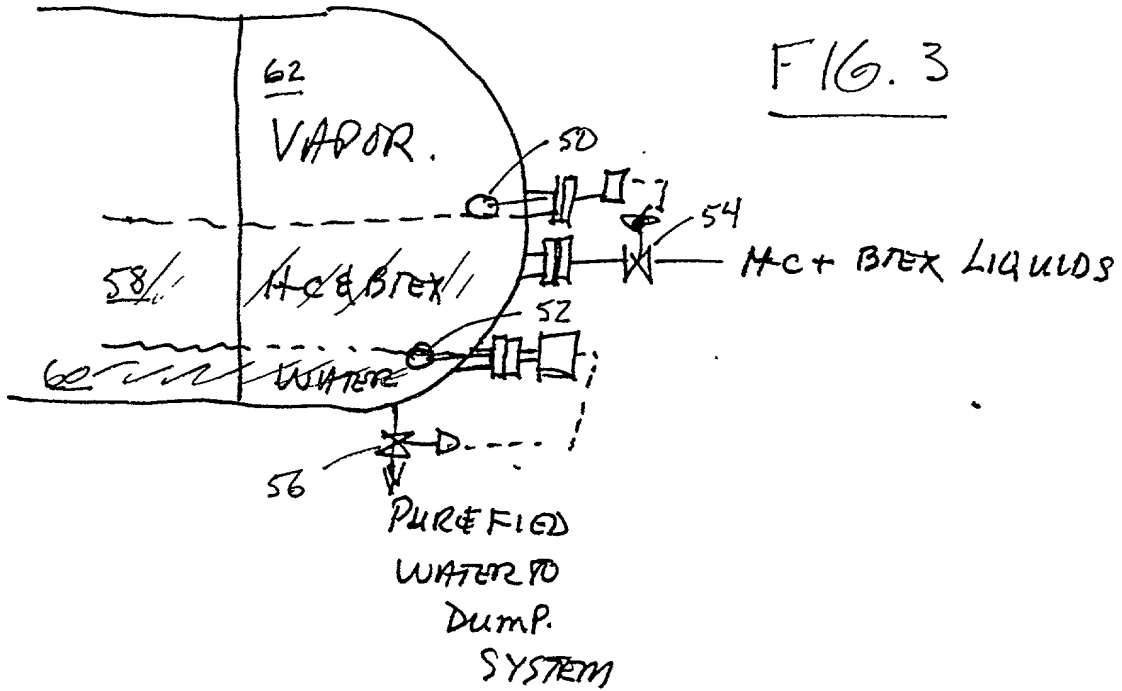 FIG. 3
62
VAPOR.
50
54
58
H-C & BTEX
H-C + BTEX LIQUIDS
52
60
WATER
56
PUREFIED
WATER TO
DUMP.
SYSTEM